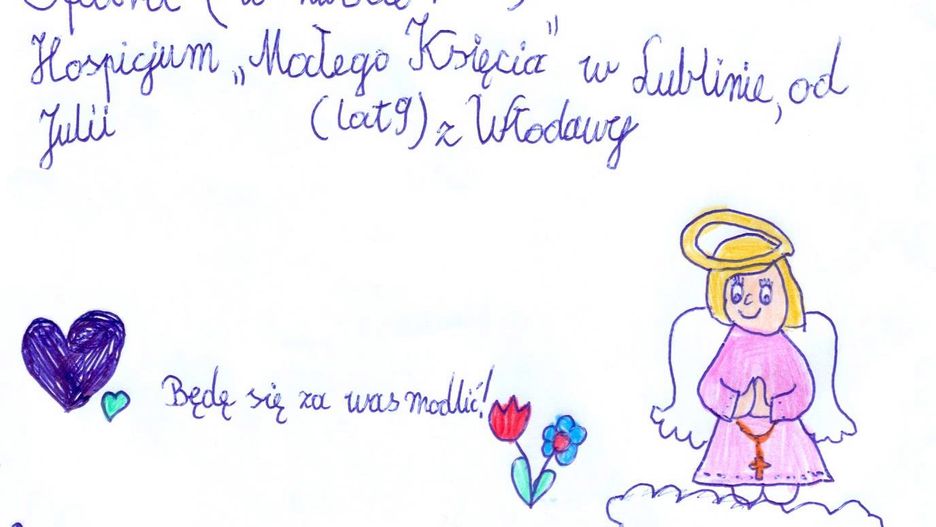 Hospicjum „Małego Księcia" w Lublinie, od
Julii (lat 9) z Włodawy
Będę się za was modlić!